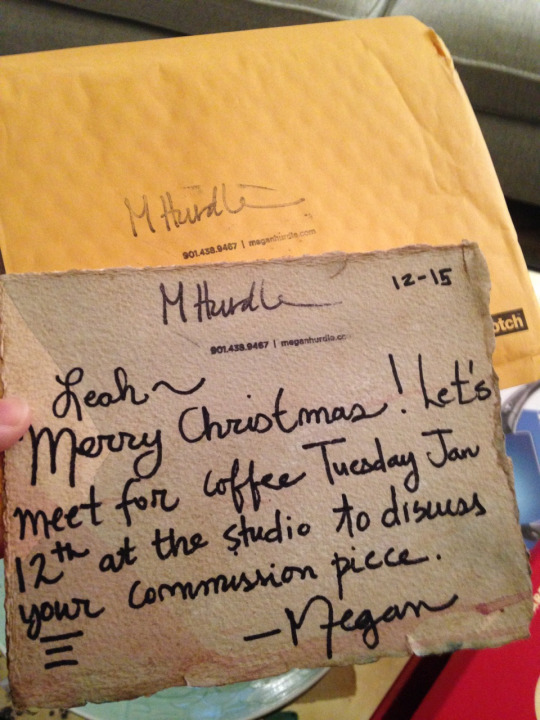 M Hurdle
901.438.9467 | meganhurdle.com
otch
M Hurdle
12-15
901.438.9467 | meganhurdle.co
Leah~
Merry Christmas! Let's
meet for coffee Tuesday Jan
12th at the studio to discuss
your commission piece.
—Megan